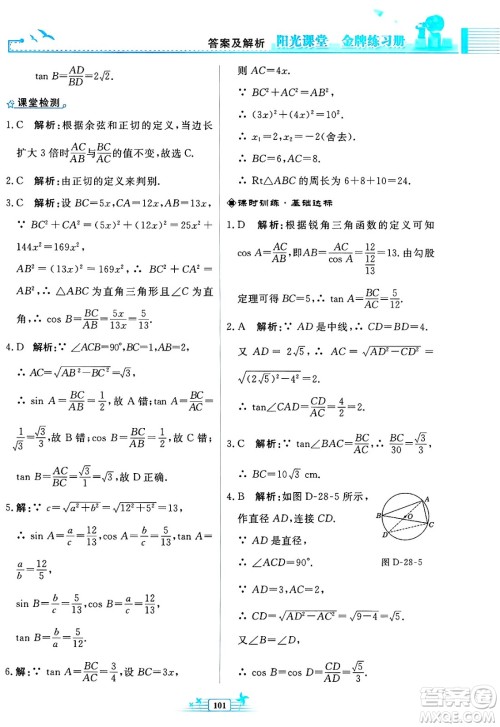 答案及解析 阳光课堂 金牌练习册
tan B=AD/BD=2√5/5.
课堂检测
1. C 解析:根据余弦和正切的定义,当边长
扩大 3 倍时AC/AB与BC/AC的值不变,故选 C.
2. C 解析:由正切的定义来判别.
3. C 解析:设 BC=5x,AB=13x,AC=12x,
∵ BC²+CA²=(5x)²+(12x)²=25x²+
144x²=169x²,
AB²=(13x)²=169x²,
∴ BC²+CA²=AB².
∴ △ABC 是直角三角形,且∠C 是直角.
∴ cos B=BC/AB=5x/13x=5/13.
4. D 解析:∵ ∠ACB=90°,BC=1,AB=2,
∴ AC=√(AB²-BC²)=√3.
∴ sin A=BC/AB=1/2,故 A 错;tan A=BC/AC=
1/√3=√3/3,故 B 错;cos B=BC/AB=1/2,故 C 错;
tan B=AC/BC=√3/1=√3,故 D 正确.
5. 解:∵ c=√(a²+b²)=√(5²+12²)=13,
∴ sin A=a/c=5/13,cos A=b/c=12/13,tan A=
a/b=5/12;
sin B=b/c=12/13,cos B=a/c=5/13,tan B=
b/a=12/5.
6. 解:∵ tan A=BC/AC=3/4,设 BC=3x,
则 AC=4x.
又∵ AC²+BC²=AB²,
∴ (3x)²+(4x)²=10².
∴ x₁=2,x₂=-2(舍去).
∴ BC=6,AC=8.
∴ Rt△ABC 的周长为 6+8+10=24.
课时训练·基础达标
1. D 解析:根据锐角三角函数的定义可知
cos A=AC/AB,即AB=AC/cos A=12/(12/13)=13.由勾股
定理可得 BC=5,∴ tan A=BC/AC=5/12.
2. A 解析:∵ AD 是中线,∴ CD=4.
又∵ AD=2√5,∴ AC=√(AD²-CD²)=
√((2√5)²-4²)=2.
∴ tan∠CAD=CD/AC=4/2=2.
3. C 解析:∵ tan∠BAC=BC/AC=BC/3=√3/3,
∴ BC=√3 cm.
4. B 解析:如图 D-28-5 所示,
作直径 AD,连接 CD.
∵ AD 是直径,
∴ ∠ACD=90°.
图 D-28-5
∴ CD=√(AD²-AC²)=√(9-4)=√5.
∴ cos D=CD/AD=√5/3.
∵ ∠B=∠D,
∴ cos B=√5/3.
101